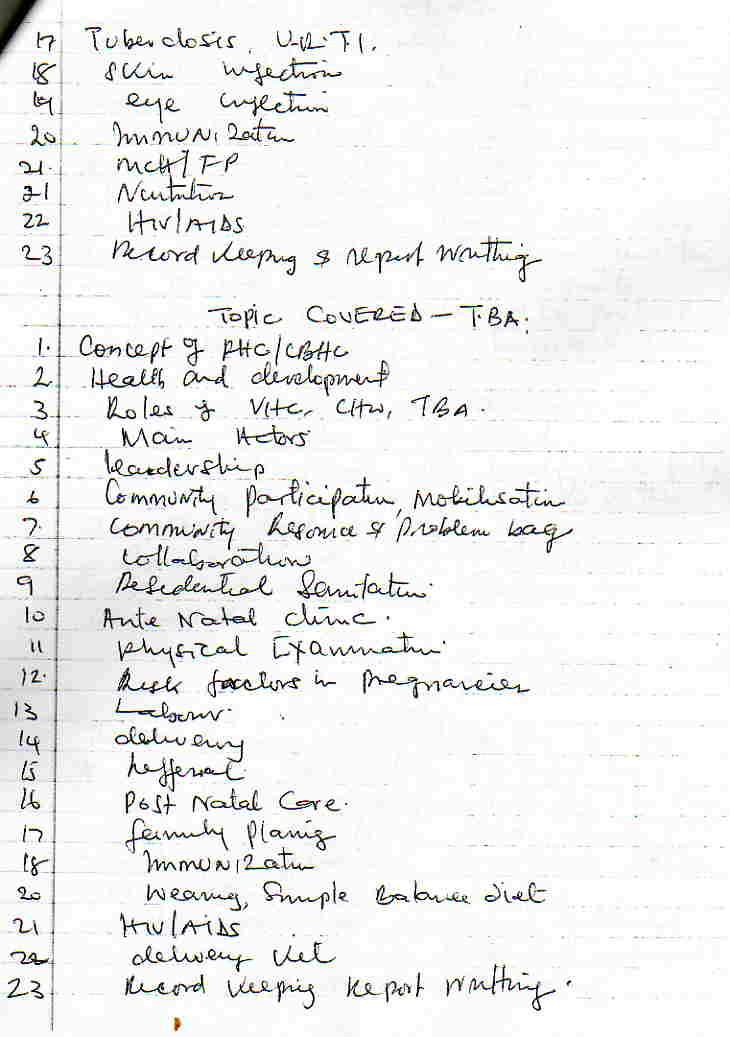 17 Tuberclosis, U.R.T.I.
18 Skin infection
19 eye infection
20 Immunization
21. MCH/FP
21 Nutrition
22 HIV/AIDS
23 Record keeping & report writting
Topic COVERED - TBA:
1. Concept of PHC/CBHC
2 Health and development
3 Roles of VHC, CHW, TBA.
4 Main Actors
5 leadership
6 Community participation, Mobilisation
7. Community Resource & problem bag
8 Collaboration
9 Residential Sanitation.
10 Ante Natal clinic.
11 physical Examination.
12. Risk factors in pregnancies
13 Labour.
14 delivery
15 Refferral.
16 Post Natal Care.
17 family planing
18 Immunization
20 Weaning, Simple Balance diet
21 HIV/AIDS
22 delivery Kit
23 Record keeping Report writting.